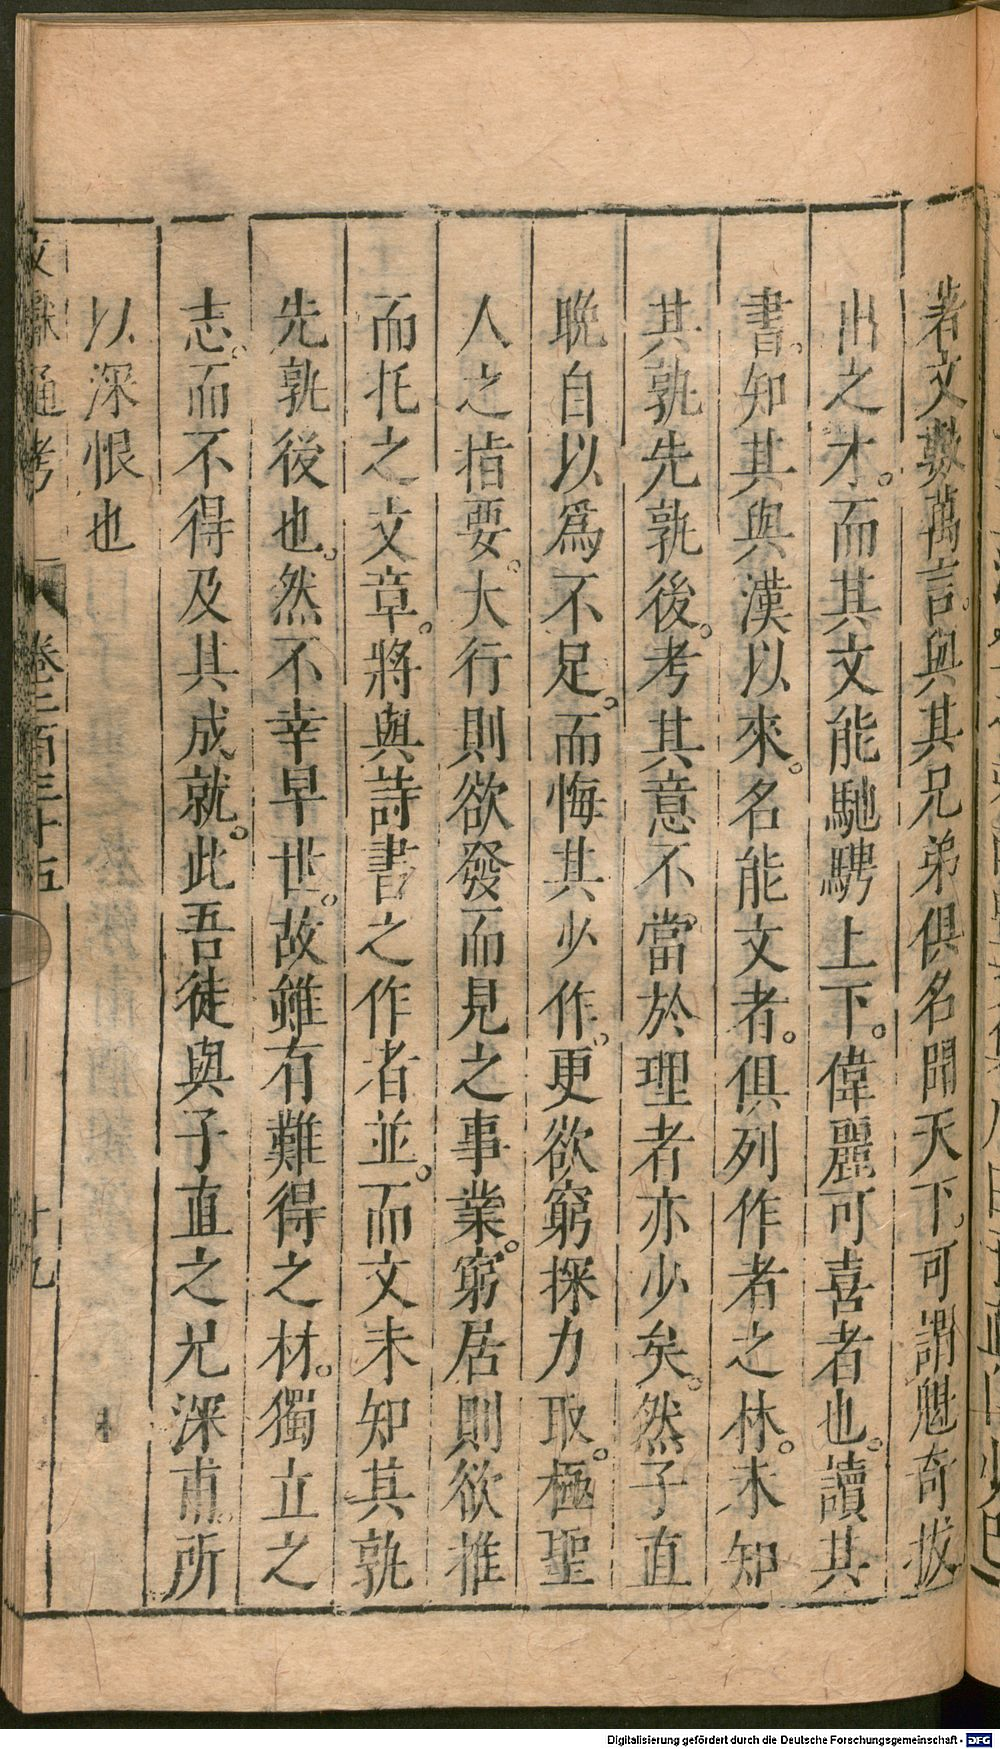 著文數萬言。與其兄弟俱名聞天下。可謂魁奇拔
出之才。而其文能馳騁上下。偉麗可喜者也。讀其
書。知其與漢以來。名能文者。俱列作者之林。未知
其孰先孰後。考其意不當於理者亦少矣。然子直
晩自以爲不足。而悔其少作。更欲窮探力取。極聖
人之指要。大行則欲發而見之事業。窮居則欲推
而托之文章。將與詩書之作者並。而文未知其孰
先孰後也。然不幸早世。故雖有難得之材。獨立之
志。而不得及其成就。此吾徒與子直之兄深甫。所
以深恨也
文獻通考
卷二百三十五
十九
Digitalisierung gefördert durch die Deutsche Forschungsgemeinschaft - DFG